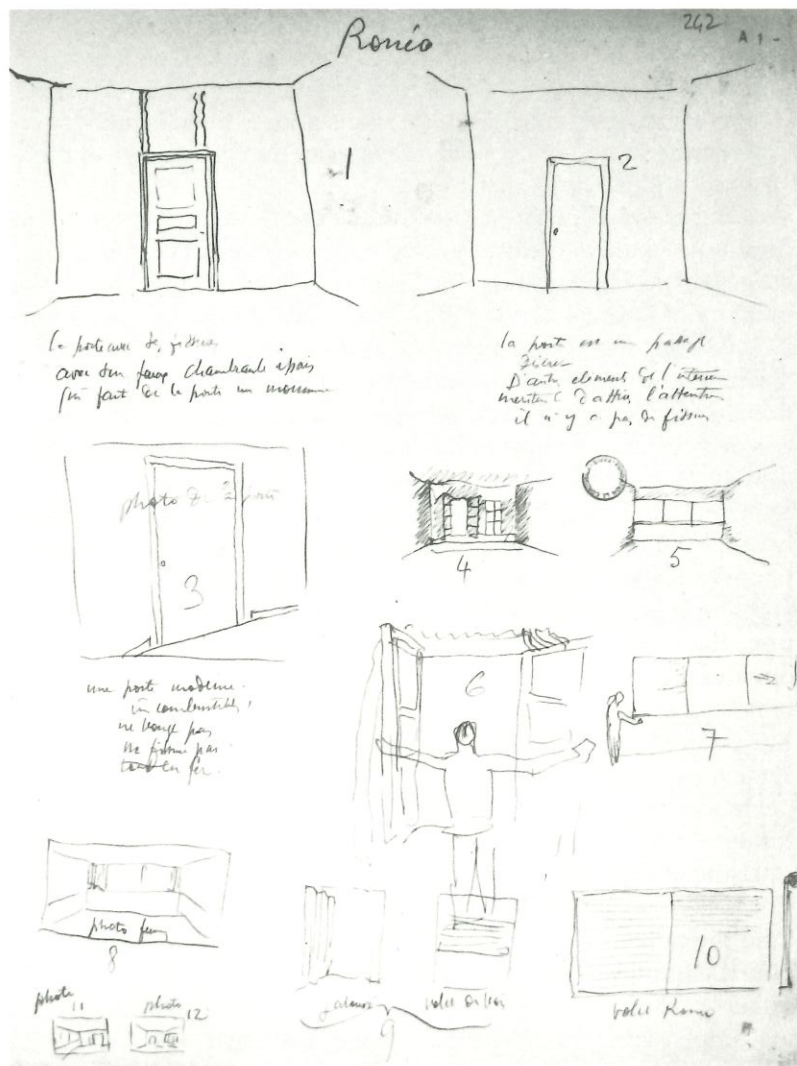 Ronéo
242
A 1 -
1
2
la porte avec des fissures
avec son faux chambranle épais
qui fait de la porte un monument
la porte est un passage
D'autres elements de l'interieur
meritent d'attirer l'attention
il n'y a pas de fissures
photo de la porte
3
4
5
une porte moderne.
incombustible !
ne bouge pas
ne fissure pas
tout en fer.
6
7
photo
8
photo
11
photo
12
jalousie
volet en bois
9
10
volet Roneo